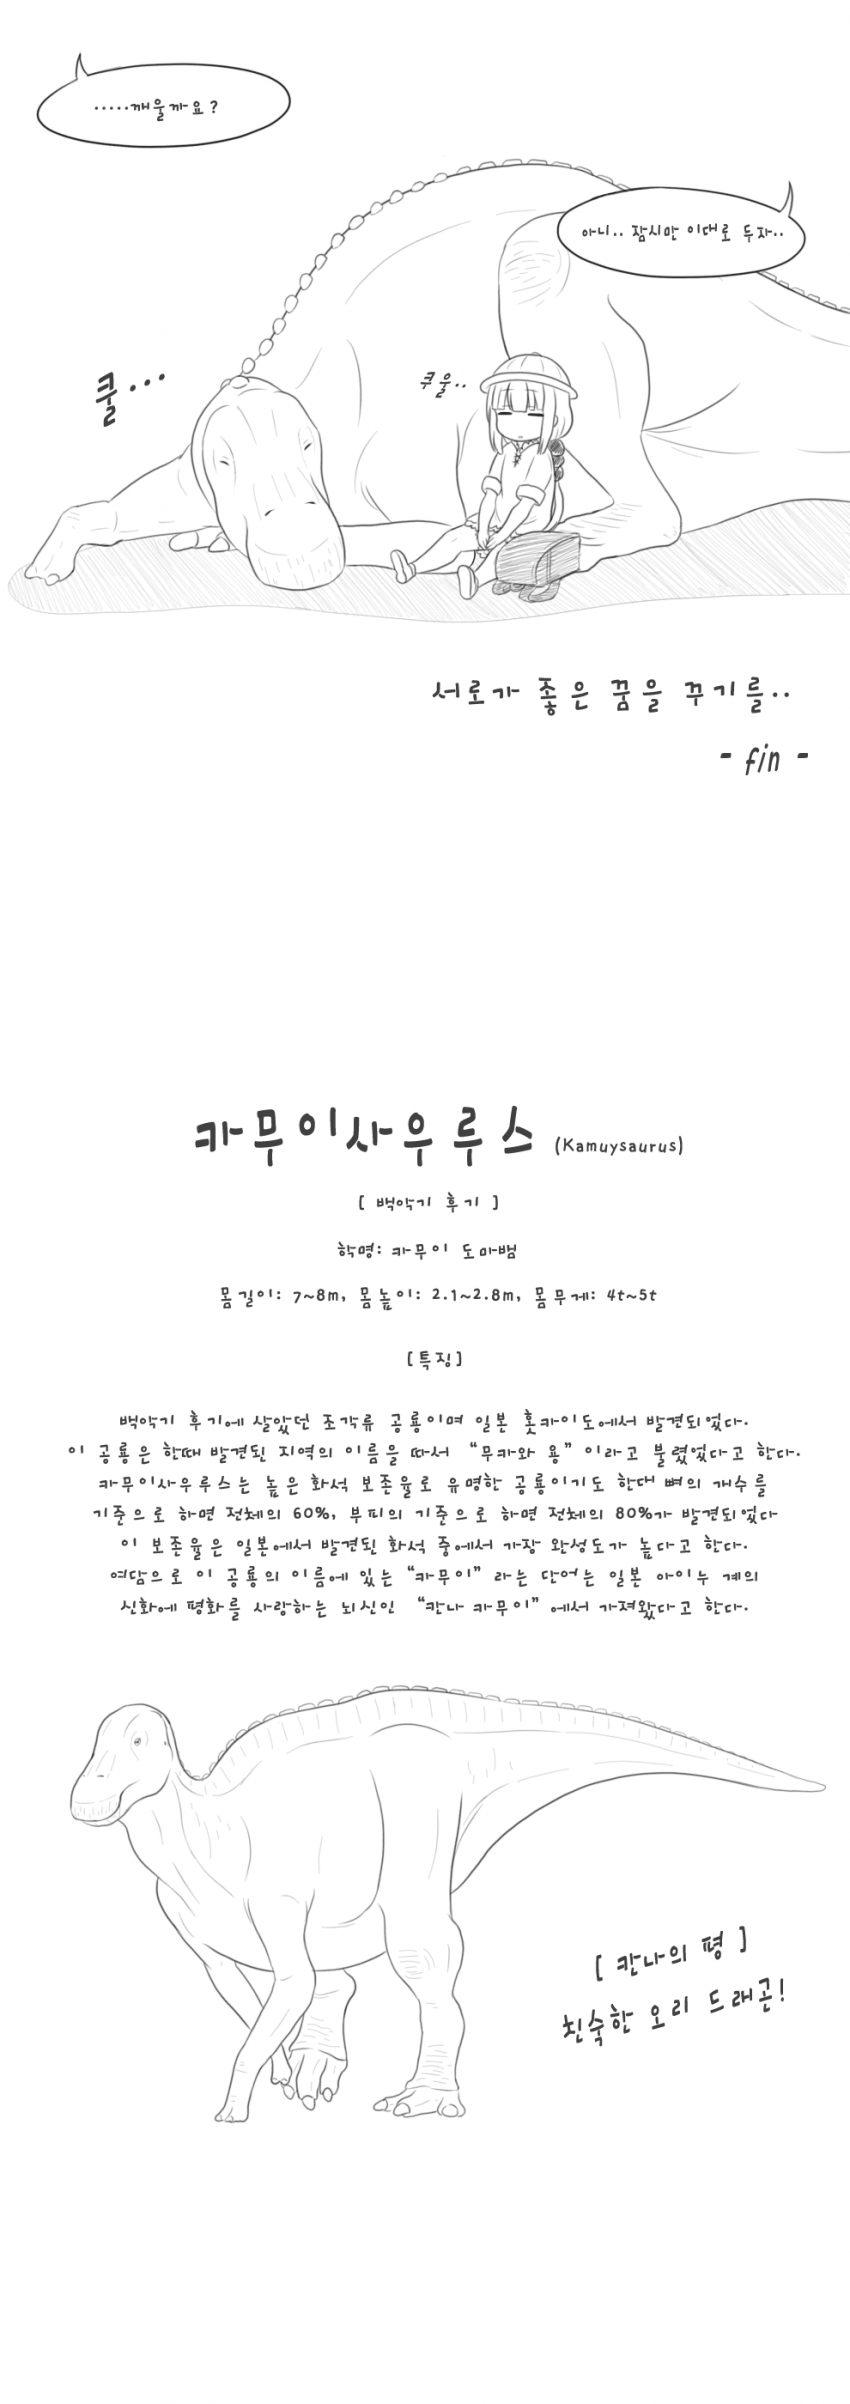 .....깨울까요?
아니.. 잠시만 이대로 두자..
쿨...
쿠울..
서로가 좋은 꿈을 꾸기를..
- fin -
카무이사우루스 (Kamuysaurus)
[ 백악기 후기 ]
학명: 카무이 도마뱀
몸길이: 7~8m, 몸높이: 2.1~2.8m, 몸무게: 4t~5t
[특징]
백악기 후기에 살았던 조각류 공룡이며 일본 홋카이도에서 발견되었다.
이 공룡은 한때 발견된 지역의 이름을 따서 “무카와 용” 이라고 불렸었다고 한다.
카무이사우루스는 높은 화석 보존율로 유명한 공룡이기도 한대 뼈의 개수를
기준으로 하면 전체의 60%, 부피의 기준으로 하면 전체의 80%가 발견되었다
이 보존율은 일본에서 발견된 화석 중에서 가장 완성도가 높다고 한다.
여담으로 이 공룡의 이름에 있는 “카무이” 라는 단어는 일본 아이누 계의
신화에 평화를 사랑하는 뇌신인 “칸나 카무이” 에서 가져왔다고 한다.
[ 칸나의 평 ]
친숙한 오리 드래곤!